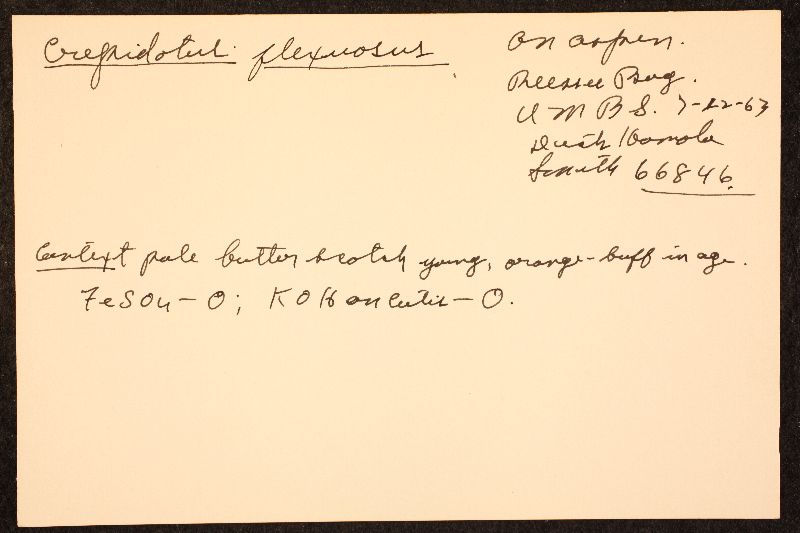 Crepidotus flexuosus
on aspen.
Reese's Bog.
U M B S. 7-22-63
Smith 66846.
Context pale butter scotch young, orange-buff in age.
FeSO4 – O; KOH on cutis – O.